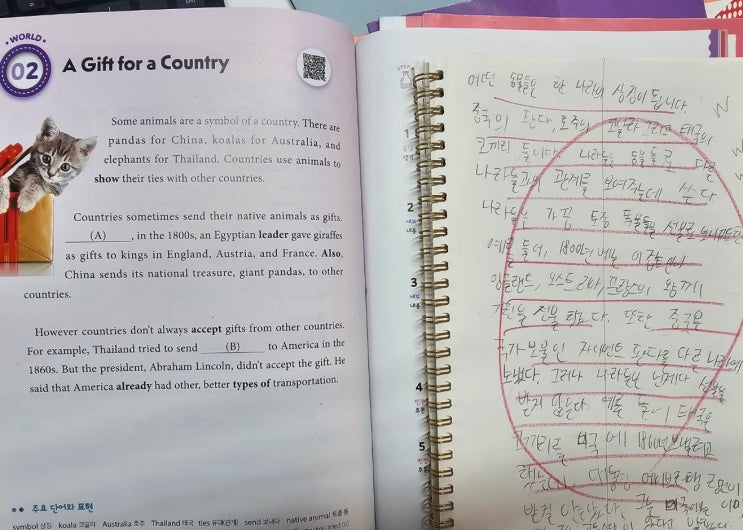 WORLD
02
A Gift for a Country
Some animals are a symbol of a country. There are
pandas for China, koalas for Australia, and
elephants for Thailand. Countries use animals to
show their ties with other countries.
Countries sometimes send their native animals as gifts.
(A) , in the 1800s, an Egyptian leader gave giraffes
as gifts to kings in England, Austria, and France. Also,
China sends its national treasure, giant pandas, to other
countries.
However countries don't always accept gifts from other countries.
For example, Thailand tried to send (B) to America in the
1860s. But the president, Abraham Lincoln, didn't accept the gift. He
said that America already had other, better types of transportation.
주요 단어와 표현
symbol 상징 koala 코알라 Australia 호주 Thailand 태국 ties 유대(관계) send 보내다 native animal 토종 동
1
2
3
4
5
어떤 동물들은 한 나라의 상징이 됩니다.
중국의 판다, 호주의 코알라 그리고 태국의
코끼리 들이다. 나라들은 동물들로 다른
나라들과의 관계를 보여주는데 쓴다.
나라들은 가끔 토종 동물들을 선물로
예를 들어, 1800년에는 이집트인이
잉글랜드, 오스트리아, 프랑스의 왕께
기린을 선물 했다. 또한 중국은
국가 보물인 자이언트 판다를 다른 나라에
보냈다. 그러나 나라들은 언제나 선물을
받지 않는다. 예를 들어 태국은
코끼리를 미국에 보내려고
대통령